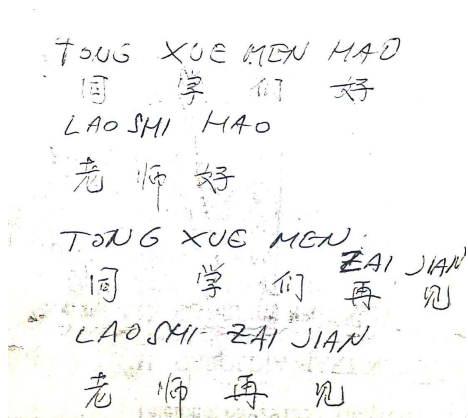 TONG XUE MEN HAO
同 学 们 好
LAO SHI HAO
老 师 好
TONG XUE MEN ZAI JIAN
同 学 们 再 见
LAO SHI ZAI JIAN
老 师 再 见